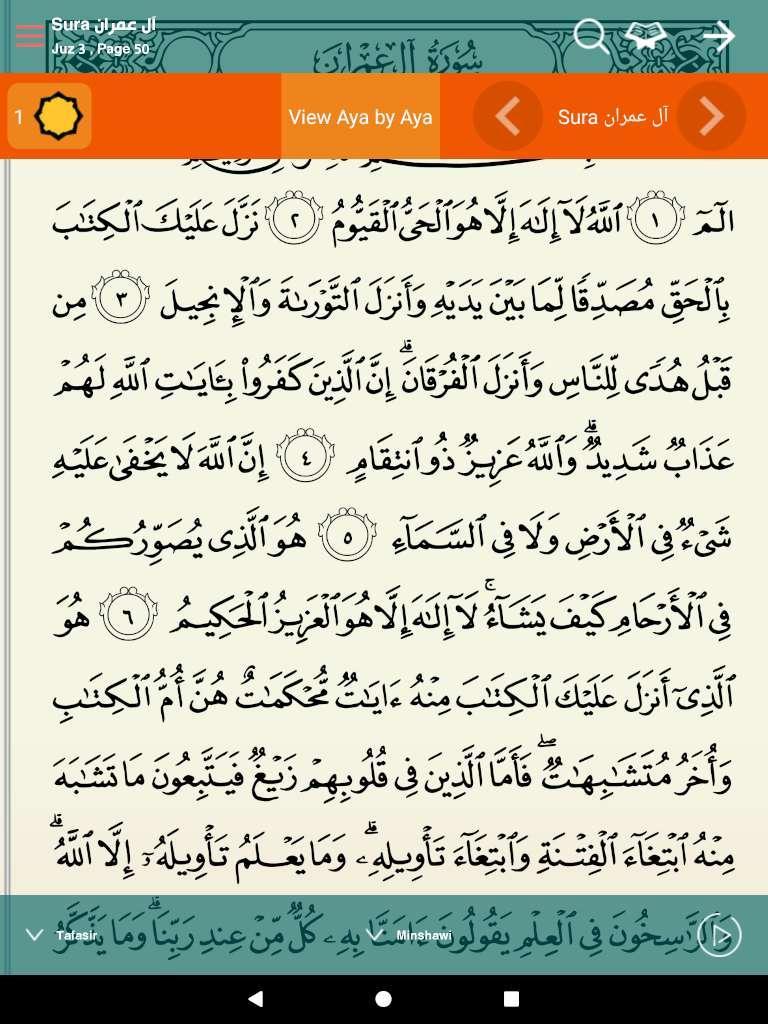 Sura آل عمران
Juz 3 , Page 50
سُورَةُ آلِ عِمْرَانَ
1
View Aya by Aya
Sura آل عمران
الٓمٓ ١ ٱللَّهُ لَآ إِلَٰهَ إِلَّا هُوَ ٱلْحَىُّ ٱلْقَيُّومُ ٢ نَزَّلَ عَلَيْكَ ٱلْكِتَٰبَ
بِٱلْحَقِّ مُصَدِّقًا لِّمَا بَيْنَ يَدَيْهِ وَأَنزَلَ ٱلتَّوْرَىٰةَ وَٱلْإِنجِيلَ ٣ مِن
قَبْلُ هُدًى لِّلنَّاسِ وَأَنزَلَ ٱلْفُرْقَانَ ۗ إِنَّ ٱلَّذِينَ كَفَرُوا۟ بِـَٔايَٰتِ ٱللَّهِ لَهُمْ
عَذَابٌ شَدِيدٌ ۗ وَٱللَّهُ عَزِيزٌ ذُو ٱنتِقَامٍ ٤ إِنَّ ٱللَّهَ لَا يَخْفَىٰ عَلَيْهِ
شَىْءٌ فِى ٱلْأَرْضِ وَلَا فِى ٱلسَّمَآءِ ٥ هُوَ ٱلَّذِى يُصَوِّرُكُمْ
فِى ٱلْأَرْحَامِ كَيْفَ يَشَآءُ ۚ لَآ إِلَٰهَ إِلَّا هُوَ ٱلْعَزِيزُ ٱلْحَكِيمُ ٦ هُوَ
ٱلَّذِىٓ أَنزَلَ عَلَيْكَ ٱلْكِتَٰبَ مِنْهُ ءَايَٰتٌ مُّحْكَمَٰتٌ هُنَّ أُمُّ ٱلْكِتَٰبِ
وَأُخَرُ مُتَشَٰبِهَٰتٌ ۖ فَأَمَّا ٱلَّذِينَ فِى قُلُوبِهِمْ زَيْغٌ فَيَتَّبِعُونَ مَا تَشَٰبَهَ
مِنْهُ ٱبْتِغَآءَ ٱلْفِتْنَةِ وَٱبْتِغَآءَ تَأْوِيلِهِۦ ۗ وَمَا يَعْلَمُ تَأْوِيلَهُۥٓ إِلَّا ٱللَّهُ ۗ
وَٱلرَّٰسِخُونَ فِى ٱلْعِلْمِ يَقُولُونَ ءَامَنَّا بِهِۦ كُلٌّ مِّنْ عِندِ رَبِّنَا ۗ وَمَا يَذَّكَّرُ
Tafasir
Minshawi